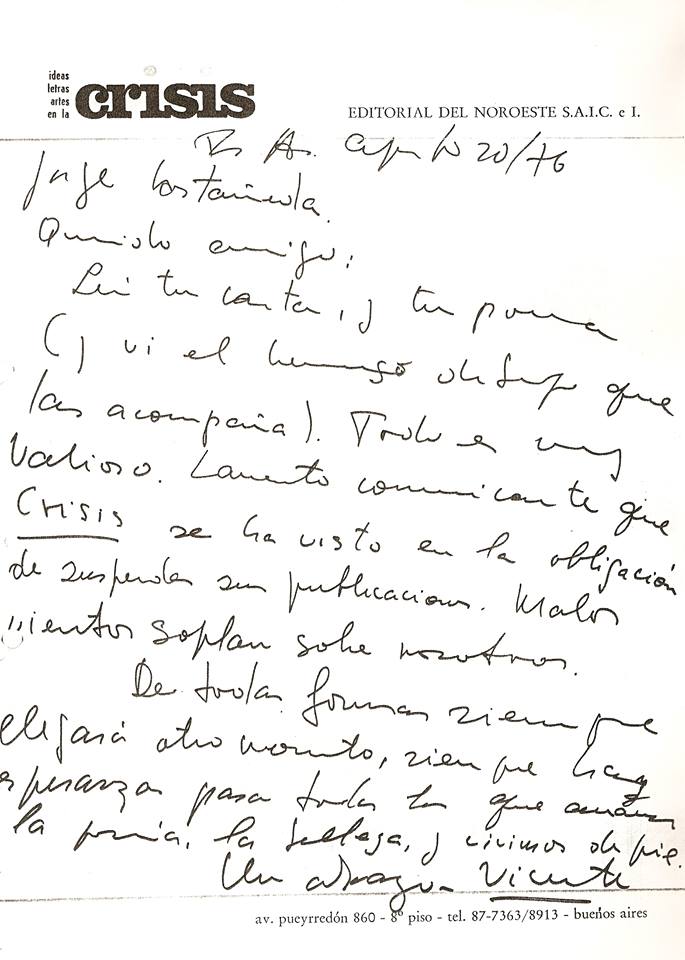 ideas
letras
artes
en la crisis
EDITORIAL DEL NOROESTE S.A.I.C. e I.
Bs As. Agosto 20/76
Jorge
Querido amigo:
Leí tu carta, y tu poema
(y vi el hermoso dibujo que
las acompaña). Todo es muy
valioso. Lamento comunicarte que
Crisis se ha visto en la obligación
de suspender sus publicaciones. Malos
vientos soplan sobre nosotros.
De todas formas siempre
llegará otro momento, siempre hay
esperanzas para todos los que amamos
la poesía, la belleza, y vivimos de pie.
Un abrazo- Vicente
av. pueyrredón 860 - 8º piso - tel. 87-7363/8913 - buenos aires